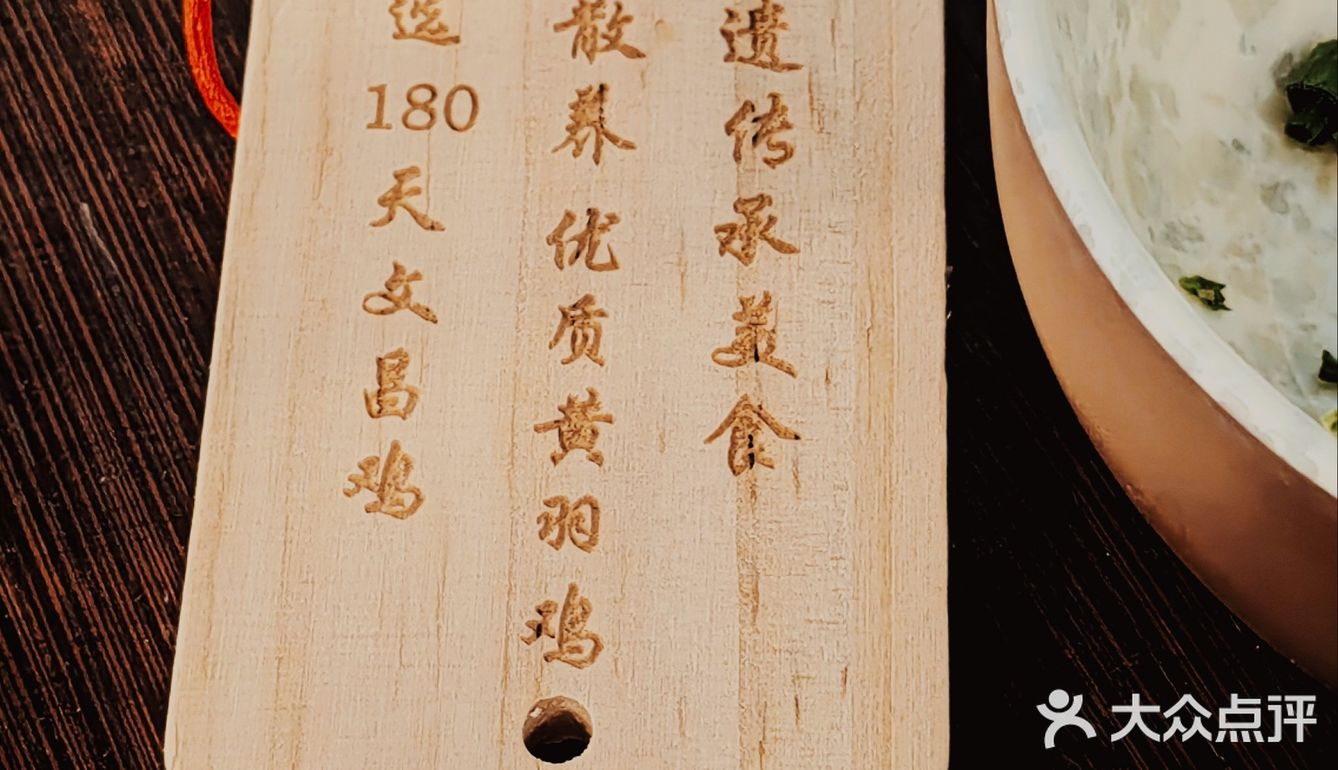 遗传承美食
散养优质黄羽鸡
选180天文昌鸡
大众点评